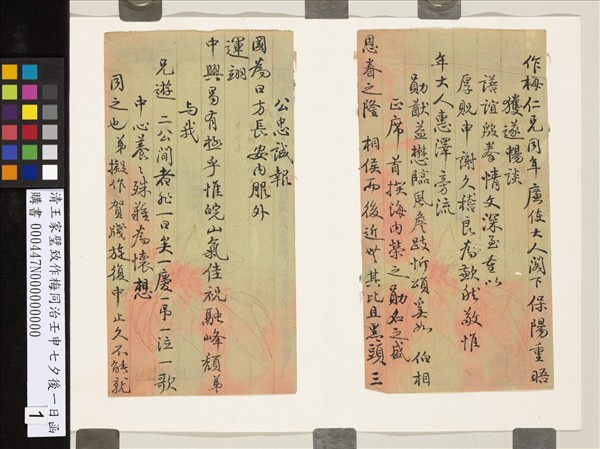 作梅仁兄同年廉使大人閣下保陽重晤
獲遂暢談
誼殷拳情文深至
厚貺申謝久稽良為歉然敬惟
年大人惠澤旁流
勛猷益懋臨風跂忻頌奚如 伯相
正席首揆海內榮之勛名之盛
恩眷之隆 相侯而後近世其比且黑頭三
公忠誠報
國為日方長安內服外
運翊
中興曷有極乎惟皖山氣佳祝融峰頹弟
與我
兄遊 二公間者一日矣一慶一弔一泣一歌
中心養〻殊難為懷想
同之也弟擬作賀牋旋復中止久不能就
清王家璧致作梅同治壬申七夕後一日函
購書 000447N000000000
1